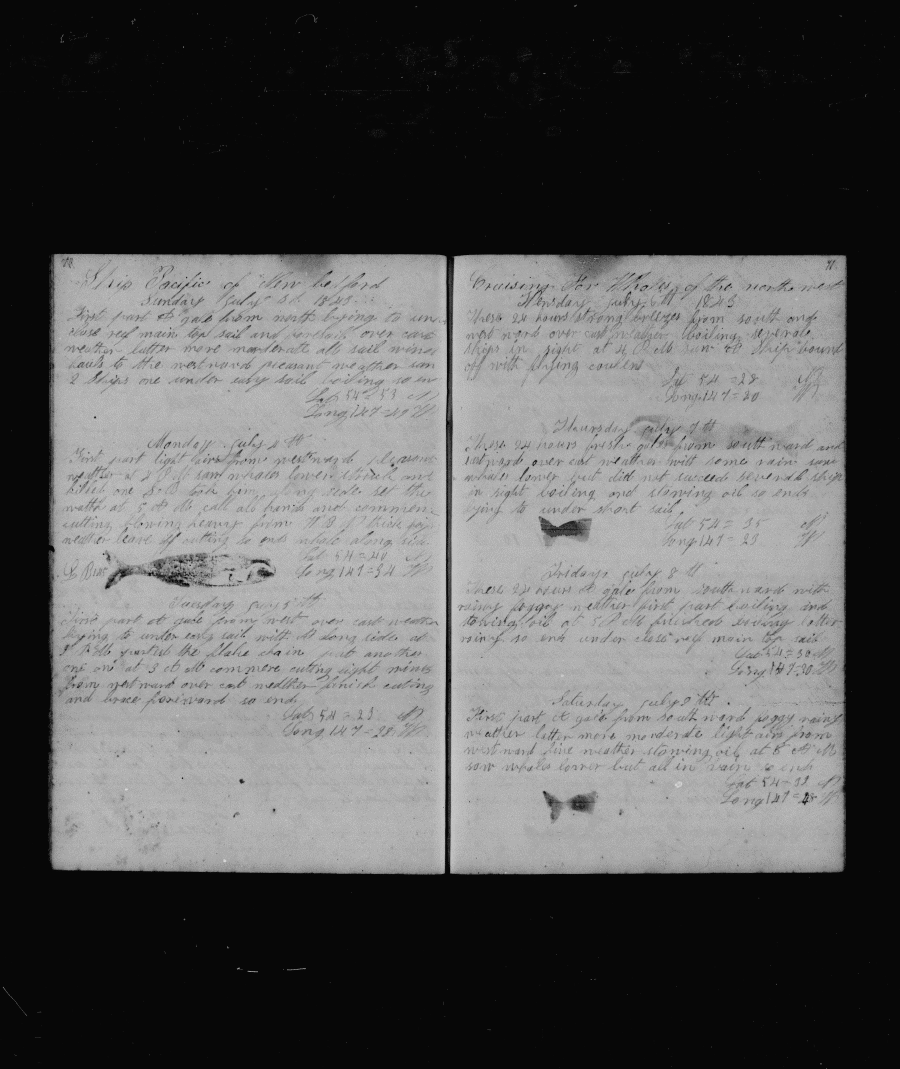 70
Ship Pacific of New bedford
Sunday July 3d 1843
First part A gale from north lying to under
close reef main top sail and foresail over cast
weather latter more moderate all sail winds
hauls to the westward pleasant weather saw
2 Ships one under easy sail boiling so en
Lat 54=53 N
Long 147=40 W
Monday July 4 th
First part light airs from westward pleasant
weather at 2 P M saw whales lower struck and
killed one took him along side set the
watch at 5 A M call all hands and commence
cutting blowing heavy from thick fogy
weather leave off cutting so ends whale along side
Lat 54=40 N
Long 147=34 W
Tuesday July 5 th
First part A gale from west over cast weather
laying to under easy sail with A long side at
parted the fluke chain put another
one on at 3 A M commence cutting light winds
from westward over cast weather finish cutting
and brace forward so ends
Lat 54=23 N
Long 147=28 W
71
Cruising For Whales of the north west
Wensday July 6 th 1843
These 24 hours strong breezes from south and
west ward over cast weather boiling several
ships in sight at 4 P M saw A Ship bound
off with flying coulers
Lat 54=28 N
Long 147=20 W
Thursday July 7 th
These 24 hours fresh gales from southward and
eastward over cast weather with some rain saw
whales lower but did not succeed several ships
in sight boiling and stowing oil so ends
lying to under short sail
Lat 54=35 N
Long 147=23 W
Fridays July 8 th
These 24 hours A gale from southward with
rainy foggy weather first part boiling and
stowing oil at 5 A M finished boiling latter
rainy so ends under close reef main top sail
Lat 54=30 N
Long 147=30 W
Saturday July 9 th
First part A gale from southward foggy rainy
weather latter more moderate light airs from
westward fine weather stowing oil at 6 A M
saw whales lower but all in vain so ends
Lat 54=32 N
Long 147=28 W